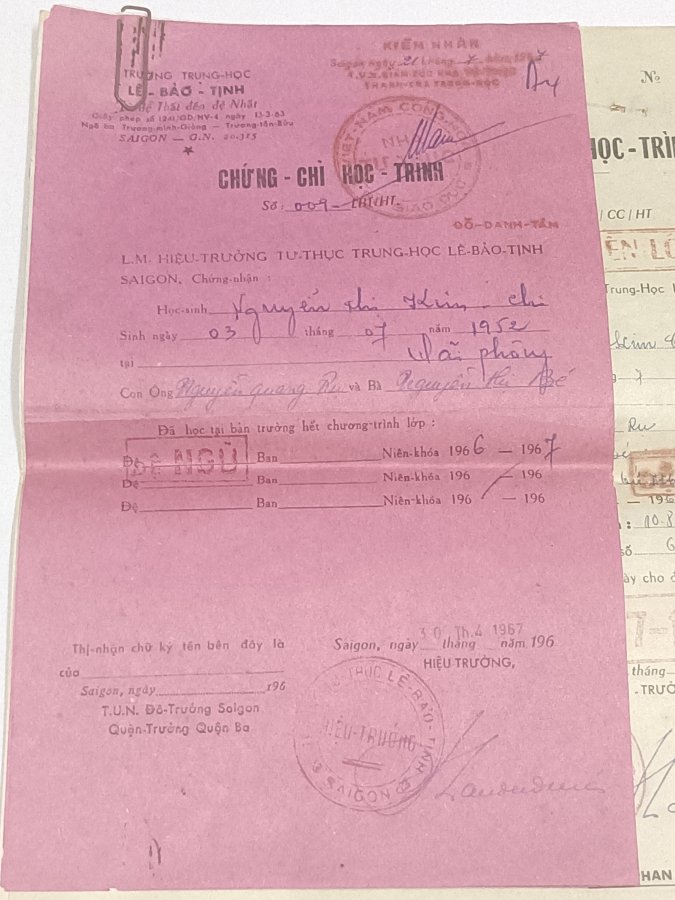 TRƯỜNG TRUNG-HỌC
LÊ - BẢO - TỊNH
Đệ Thất đến đệ Nhất
Giấy phép số 1241/GD/NV-4 ngày 13-3-63
Ngõ ba Trương-minh-Giảng — Trương-tấn-Bửu
SAIGON — G.N. 20.315
KIẾN NHẬN
Saigon ngày 21 tháng 7 năm 196
THANH-TRA TRUNG-HỌC
VIỆT-NAM CỘNG-HÒA
GIÁO DỤC
CHỨNG - CHỈ HỌC - TRÌNH
Số: 009 - LBT/HT.
ĐỖ-DANH-TẦM
L.M. HIỆU-TRƯỞNG TƯ-THỤC TRUNG-HỌC LÊ-BẢO-TỊNH
SAIGON, Chứng-nhận :
Học-sinh Nguyễn thị Kim - chi
Sinh ngày 03 tháng 07 năm 1952
tại Hải phòng
Con Ông Nguyễn quang Ru và Bà Nguyễn thị Bé
Đã học tại bản trường hết chương-trình lớp :
Đệ NGŨ Ban Niên-khóa 1966 — 1967
Đệ Ban Niên-khóa 196 — 196
Đệ Ban Niên-khóa 196 — 196
Thị-nhận chữ ký tên bên đây là
của
Saigon, ngày 196
T.U.N. Đô-Trưởng Saigon
Quận-Trưởng Quận Ba
30 Th.4 1967
Saigon, ngày tháng năm 196
HIỆU TRƯỞNG,
THỤC LÊ-BẢO-TỊNH
HIỆU-TRƯỞNG
SAIGON
№
HỌC-TRÌN
/ CC / HT
Trung-Học
Kim
7
Ru
196
: 10.8
số 6
ày cho
tháng
TRƯỞ
HAN